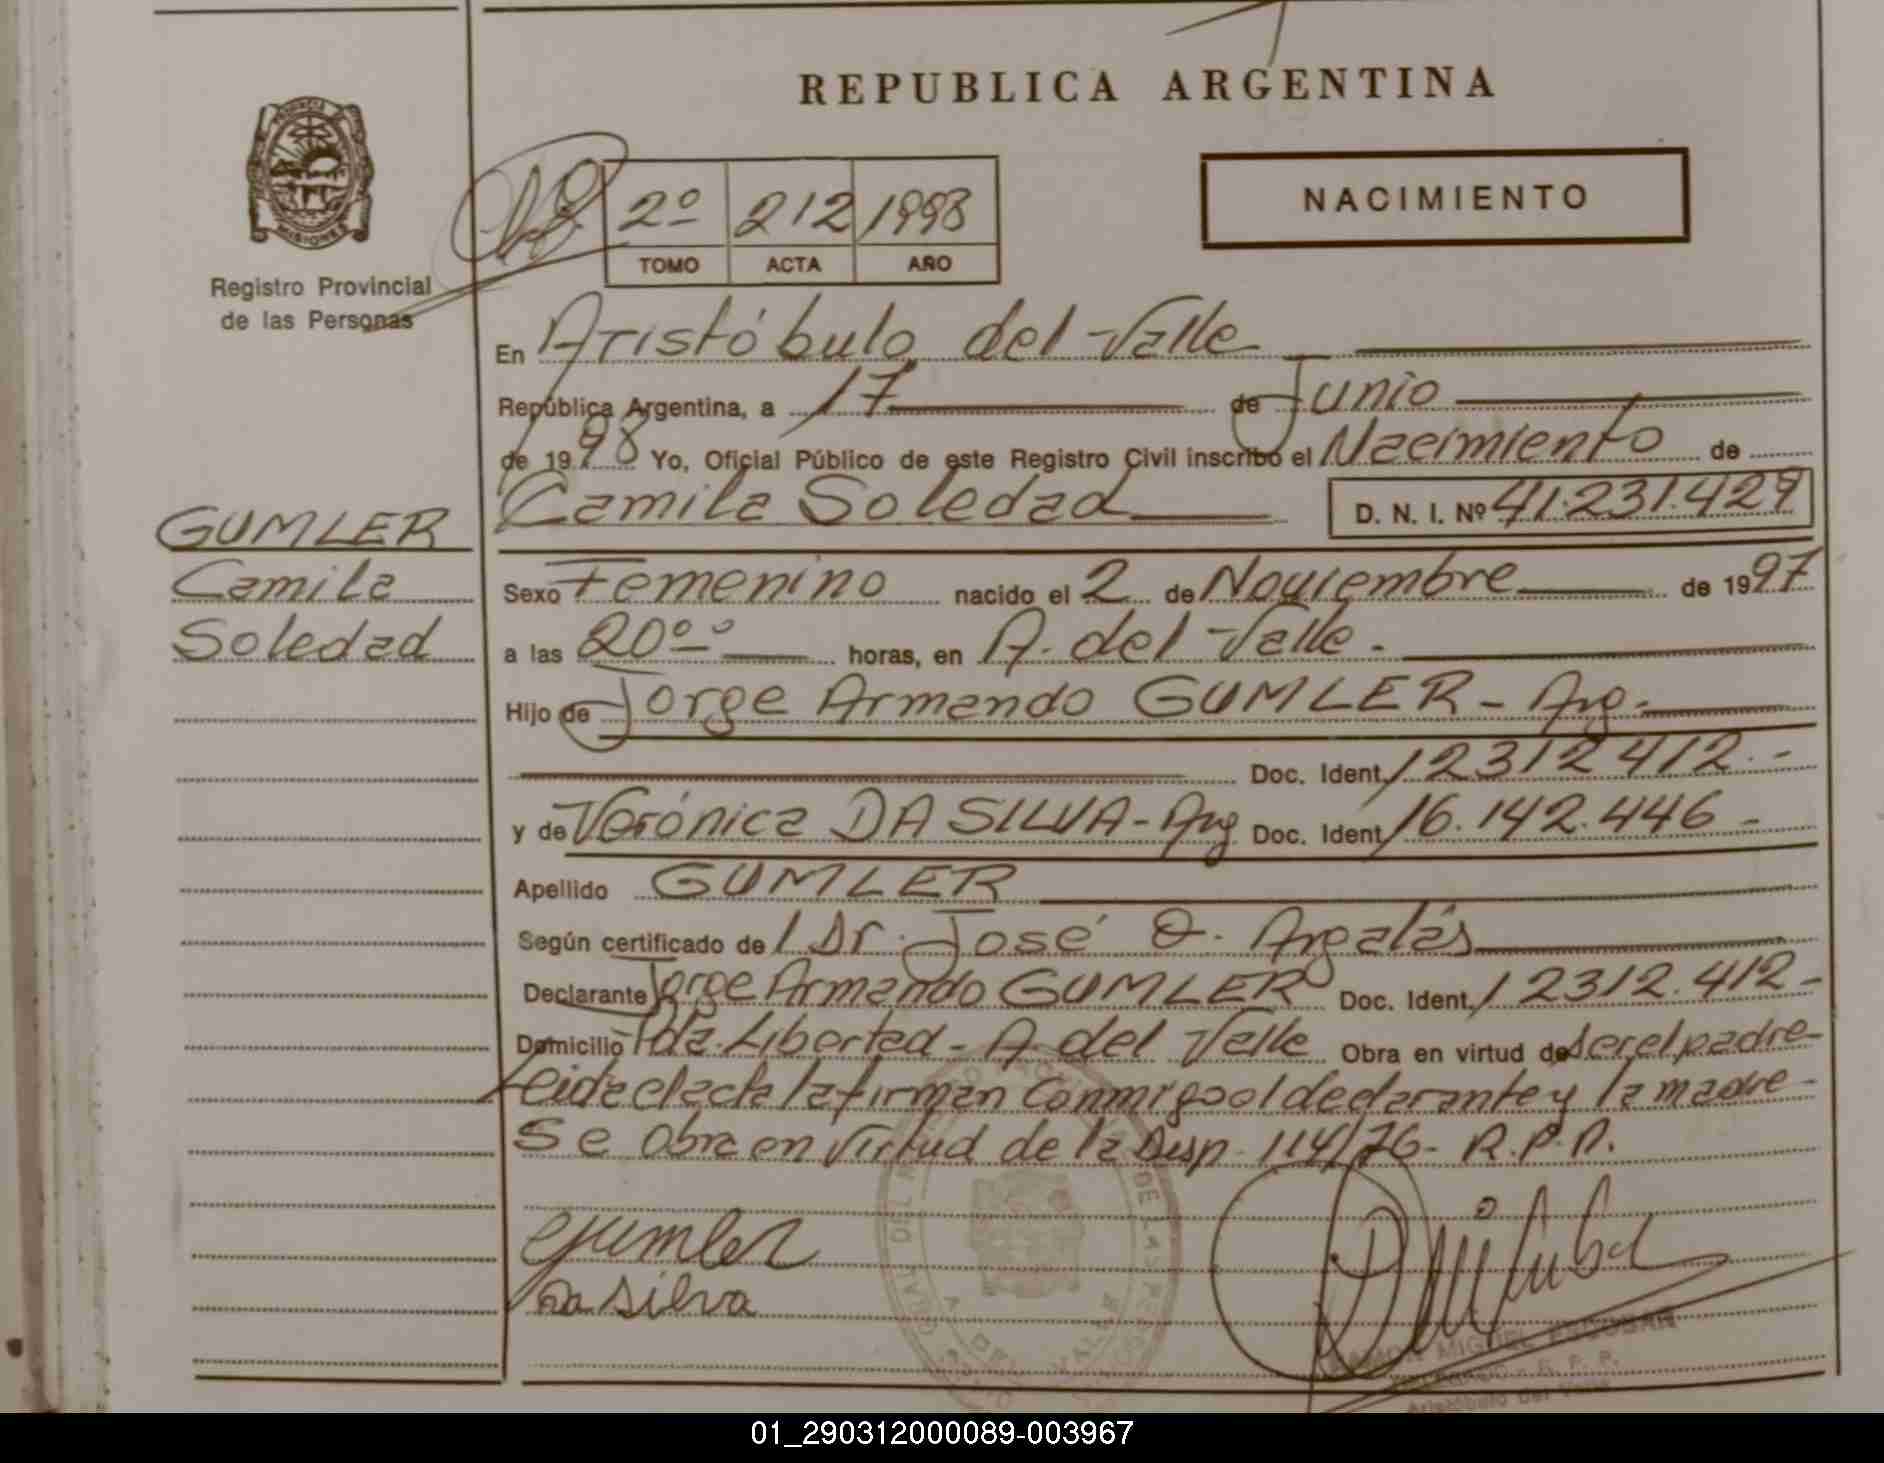 REPUBLICA ARGENTINA
PROVINCIA
MISIONES
Registro Provincial
de las Personas
2º 212 1998
TOMO ACTA AÑO
NACIMIENTO
En Aristóbulo del Valle
República Argentina, a 17 de Junio
de 1998 Yo, Oficial Público de este Registro Civil inscribo el Nacimiento de
Camila Soledad D. N. I. Nº 41.231.429
GUMLER
Camila
Soledad
Sexo Femenino nacido el 2 de Noviembre de 1997
a las 20ºº horas, en A. del Valle.
Hijo de Jorge Armando GUMLER - Arg.
Doc. Ident. 12312412.-
y de Verónica DA SILVA - Arg Doc. Ident. 16.142.446-
Apellido GUMLER
Según certificado de l Dr. José O. Argalás
Declarante Jorge Armando GUMLER Doc. Ident. 12312.412-
Domicilio Pda. Libertad - A. del Valle Obra en virtud de ser el padre-
Leida el acta la firman conmigo el declarante y la madre-
Se obra en virtud de la Disp. 114/76- R.P.P.
Gumler
Da Silva
RAMON MIGUEL ESCOBAR
Aristóbulo del Valle
01_290312000089-003967